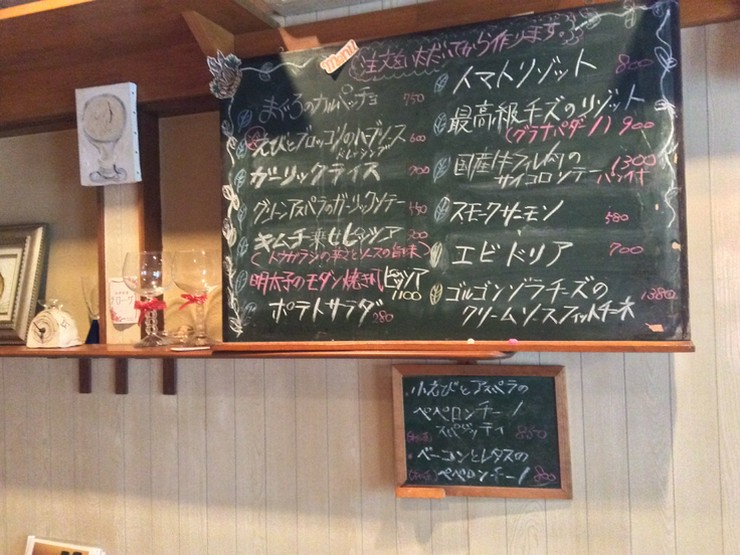 注文をいただいてから作ります。
まぐろのカルパッチョ 750
えびとブロッコリのハーブソース 600
ドレーシング
ガーリックライス 700
グリーンアスパラのガーリックソテー 550
キムチ乗せピッツア 900
(トウガラシの辛さとソースの旨味)
明太子のモダン焼き風ピッツア 1100
ポテトサラダ 280
トマトリゾット 800
最高級チーズのリゾット
(グラナパダーノ) 900
国産牛フィレ肉の 1300
サイコロソテー パン付
スモークサーモン 580
エビドリア 700
ゴルゴンゾラチーズの 1380
クリームソースフィットチーネ
小えびとアスパラの
ペペロンチーノ
スパゲッティ 850
ベーコンとレタスの
ペペロンチーノ 800